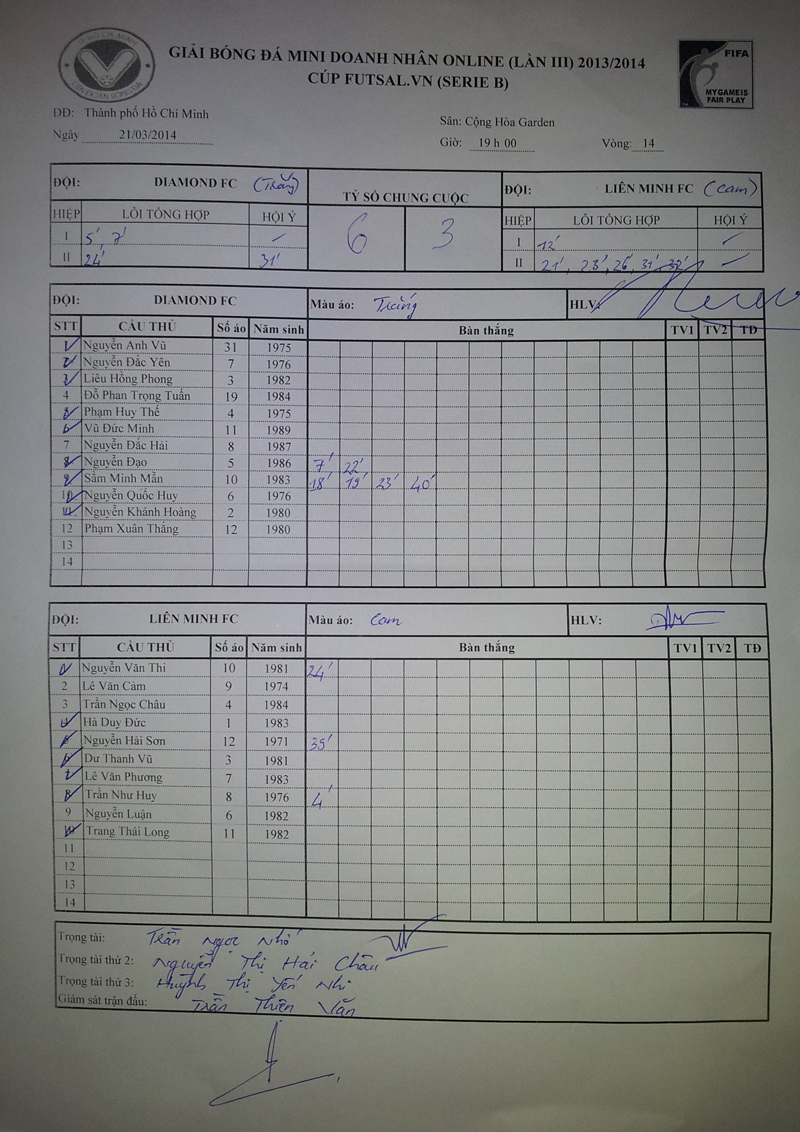 GIẢI BÓNG ĐÁ MINI DOANH NHÂN ONLINE (LẦN III) 2013/2014
CÚP FUTSAL.VN (SERIE B)
FIFA
MY GAME IS
FAIR PLAY
ĐĐ: Thành phố Hồ Chí Minh
Ngày 21/03/2014
Sân: Cộng Hòa Garden
Giờ: 19 h 00 Vòng: 14
ĐỘI: DIAMOND FC (Trắng) TỶ SỐ CHUNG CUỘC ĐỘI: LIÊN MINH FC (Cam)
HIỆP LỖI TỔNG HỢP HỘI Ý 6 3 HIỆP LỖI TỔNG HỢP HỘI Ý
I 5', 7' – I 12' –
II 24' 31' II 21', 23', 26', 31', 32' –
ĐỘI: DIAMOND FC Màu áo: Trắng HLV:
STT CẦU THỦ Số áo Năm sinh Bàn thắng TV1 TV2 TĐ
1 Nguyễn Anh Vũ 31 1975
2 Nguyễn Đắc Yên 7 1976
3 Liêu Hồng Phong 3 1982
4 Đỗ Phan Trọng Tuấn 19 1984
5 Phạm Huy Thế 4 1975
6 Vũ Đức Minh 11 1989
7 Nguyễn Đắc Hải 8 1987
8 Nguyễn Đạo 5 1986 7' 22'
9 Sầm Minh Mẫn 10 1983 18' 19' 23' 40'
10 Nguyễn Quốc Huy 6 1976
11 Nguyễn Khánh Hoàng 2 1980
12 Phạm Xuân Thắng 12 1980
13
14
ĐỘI: LIÊN MINH FC Màu áo: Cam HLV:
STT CẦU THỦ Số áo Năm sinh Bàn thắng TV1 TV2 TĐ
1 Nguyễn Văn Thi 10 1981 24'
2 Lê Văn Cảm 9 1974
3 Trần Ngọc Châu 4 1984
4 Hà Duy Đức 1 1983
5 Nguyễn Hải Sơn 12 1971 35'
6 Dư Thanh Vũ 3 1981
7 Lê Văn Phương 7 1983
8 Trần Như Huy 8 1976 4'
9 Nguyễn Luận 6 1982
10 Trang Thái Long 11 1982
11
12
13
14
Trọng tài: Trần Ngọc Nhớ
Trọng tài thứ 2: Nguyễn Thị Hải Châu
Trọng tài thứ 3: Huỳnh Thị Yến Nhi
Giám sát trận đấu: Trần Thiên Văn